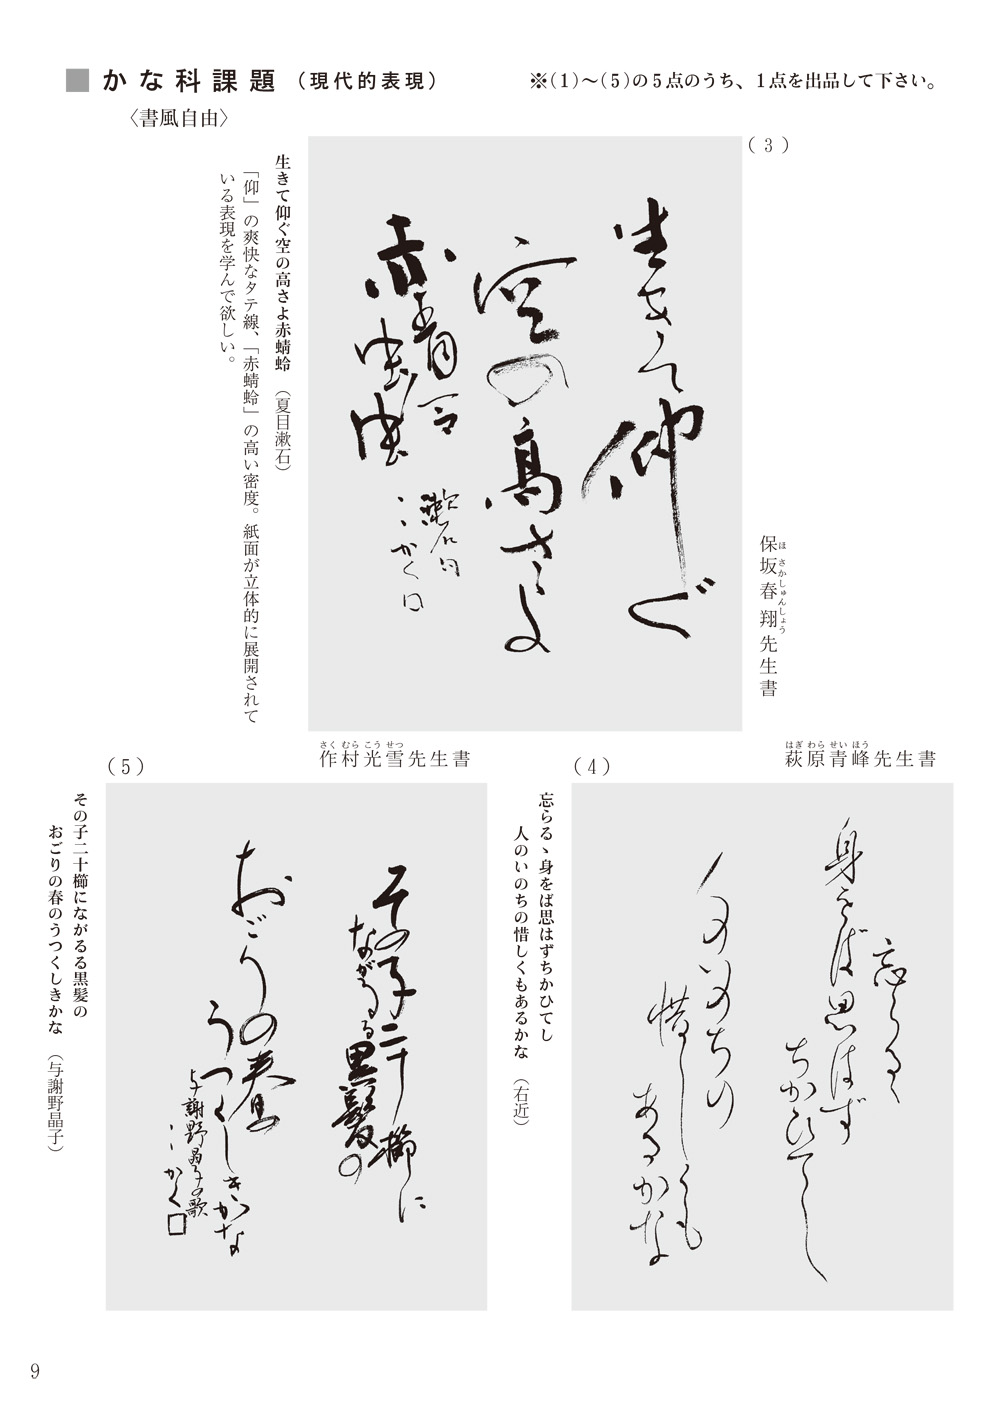 ■かな科課題（現代的表現）
※（1）〜（5）の5点のうち、1点を出品して下さい。
〈書風自由〉
（3）
保坂春翔先生書
ほさかしゅんしょう
生きて仰ぐ
空の高さよ
赤蜻蛉
漱石句
〻かく□
生きて仰ぐ空の高さよ赤蜻蛉（夏目漱石）
「仰」の爽快なタテ線、「赤蜻蛉」の高い密度。紙面が立体的に展開されて
いる表現を学んで欲しい。
（4）
萩原青峰先生書
はぎわらせいほう
忘らるゝ
身をば思はず
ちかひてし
人のいのちの
惜しくも
あるかな
忘らるゝ身をば思はずちかひてし
人のいのちの惜しくもあるかな（右近）
（5）
作村光雪先生書
さくむらこうせつ
その子二十櫛に
ながるる黒髪の
おごりの春
うつくしきかな
与謝野晶子の歌
かく□
その子二十櫛にながるる黒髪の
おごりの春のうつくしきかな（与謝野晶子）
9